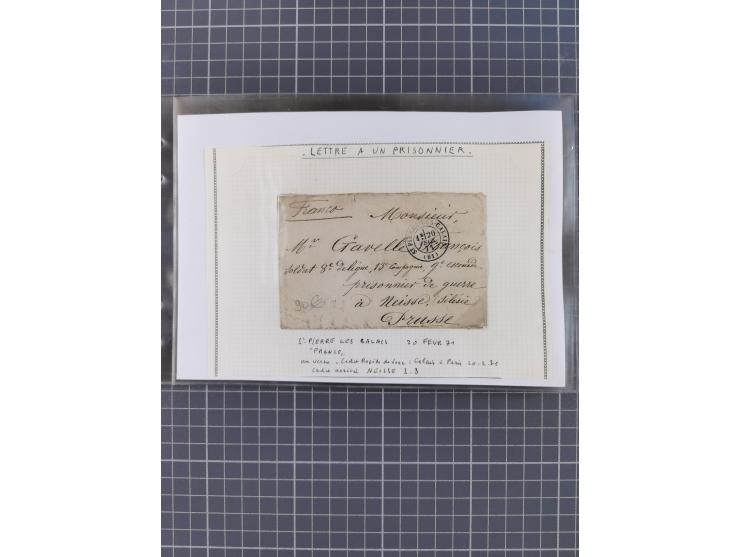 . LETTRE A UN PRISONNIER .
Franco Monsieur,
Mr. Cravelle François
Soldat 8e de ligne, 15 Compagnie, 9e escouade
prisonnier de guerre
à Neisse, Silésie
Prusse
ST PIERRE-LES-CALAIS
20
FEVR
71
(61)
90€
St PIERRE LES CALAIS 20 FEVR 71
"FRANCO"
au verso . Cachet Rapide de jour : Calais à Paris 20.2.71
Cachet arrivé NEISSE 3.3